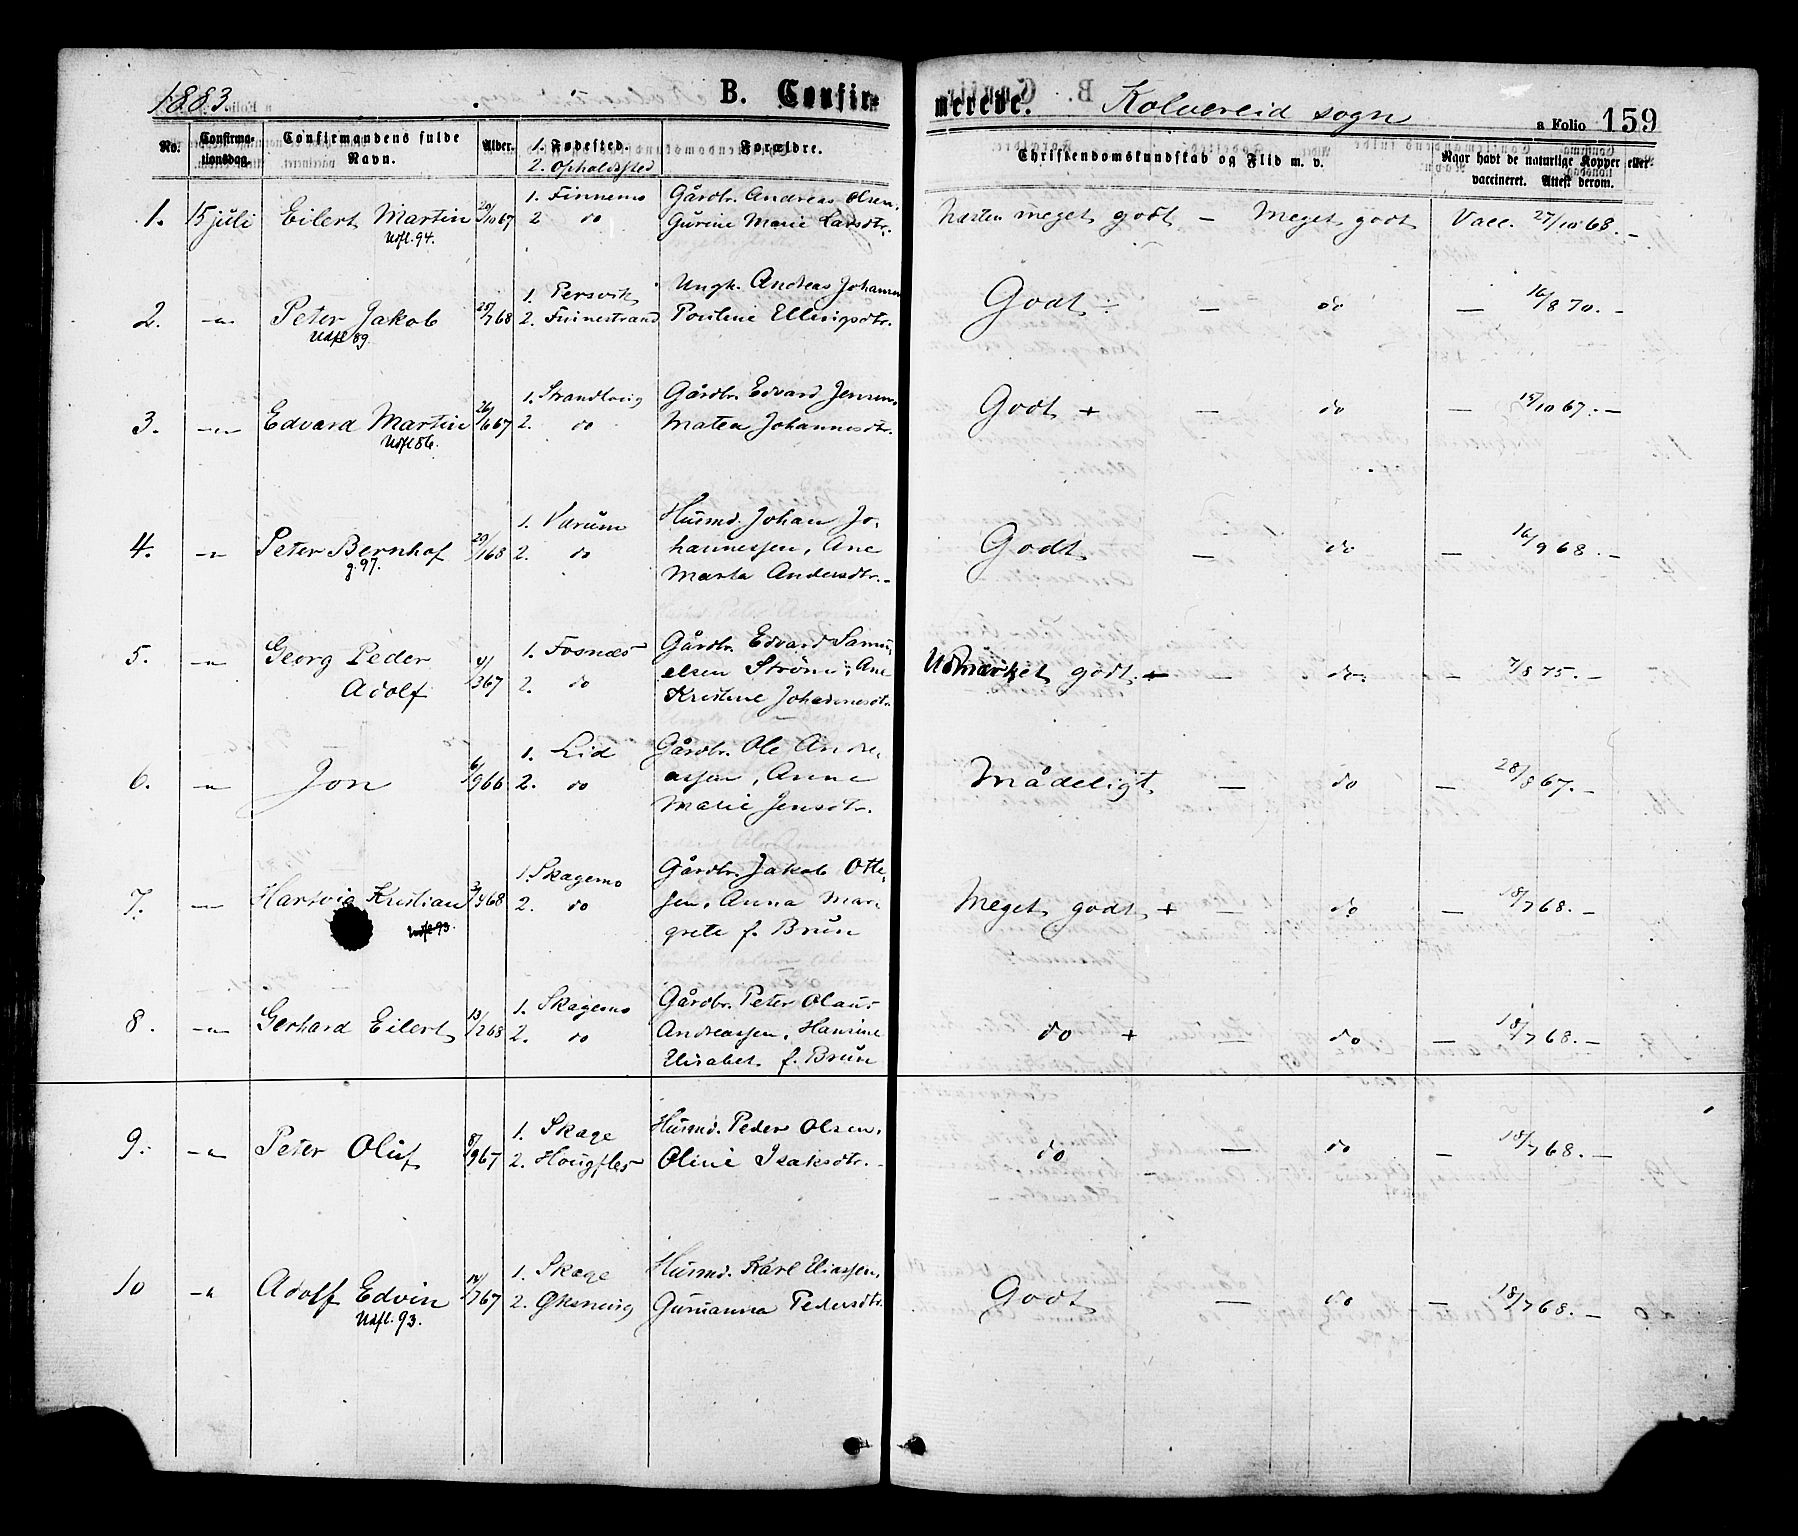 1883.
B. Confir-
merede.
Kolvereid sogn
a Folio 159
No.
Confirma-
tionsdag.
Confirmandens fulde
Navn.
Alder.
1. Fødested.
2. Opholdssted
Forældre.
Christendomskundskab og Flid m. v.
Naar havt de naturlige Kopper eller
vaccineret. Attest derom.
1. 15 juli Eilert Martin 29/10 67
Udfl. 94.
1. Finnemo
2 do
Gårdbr. Andreas Olsen,
Gurine Marie Larsdtr.
Næsten meget godt — Meget godt Vacc. 27/10 68. —
2. —"— Peter Jakob 25/7 68
Udfl 89.
1. Persvik
2. Finnestrand
Ungk. Andreas Johansen
Pouline Ellingsdtr.
Godt ÷ — do — 16/8 70. —
3. —"— Edvard Martin 26/6 67
Udfl 86.
1. Strandveig
2. do
Gårdbr. Edvard Jensen,
Matea Johannesdtr.
Godt + — do — 15/10 67. —
4. —"— Peter Bernhof 29/1 68
g. 97.
1. Varum
2. do
Husmd. Johan Jo-
hannessen, Ane
Marta Andersdtr. —
Godt — do — 16/9 68. —
5. —"— Georg Peder
Adolf 4/3 67
1. Fosnæs
2. do
Gårdbr. Edvard Samu-
elsen Strøm, Ane
Kristine Johannesdtr.
Udmærket godt. + — do — 7/8 75. —
6. —"— Jon 6/9 66
1. Lid
2. do
Gårdbr. Ole Andre-
assen, Anne
Marie Jensdtr.
Mådeligt — do — 28/8 67. —
7. —"— Hartvig Kristian 3/4 68
Udfl 93.
1. Skagemo
2. do
Gårdbr. Jakob Otte-
sen, Anna Mar-
grete f. Brun
Meget godt + — do — 18/7 68. —
8. —"— Gerhard Eilert 13/2 68
1. Skagemo
2. do
Gårdbr. Peter Olaus
Andreassen, Hansine
Elisabet f. Brun
do + — do — 18/7 68. —
9. —"— Peter Oluf 8/9 67
1. Skage
2. Hougfles
Husmd. Peder Olsen,
Oline Isaksdtr. —
do — do — 18/7 68. —
10 —"— Adolf Edvin 14/7 67
Udfl. 93.
1. Skage
2. Øksneing
Husmd. Karl Eliassen,
Gurianna Pedersdtr.
Godt — do — 18/7 68. —